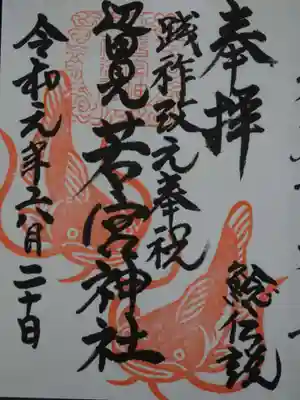 奉拝
踐祚改元奉祝
若宮神社
鯰伝説
令和元年六月二十日